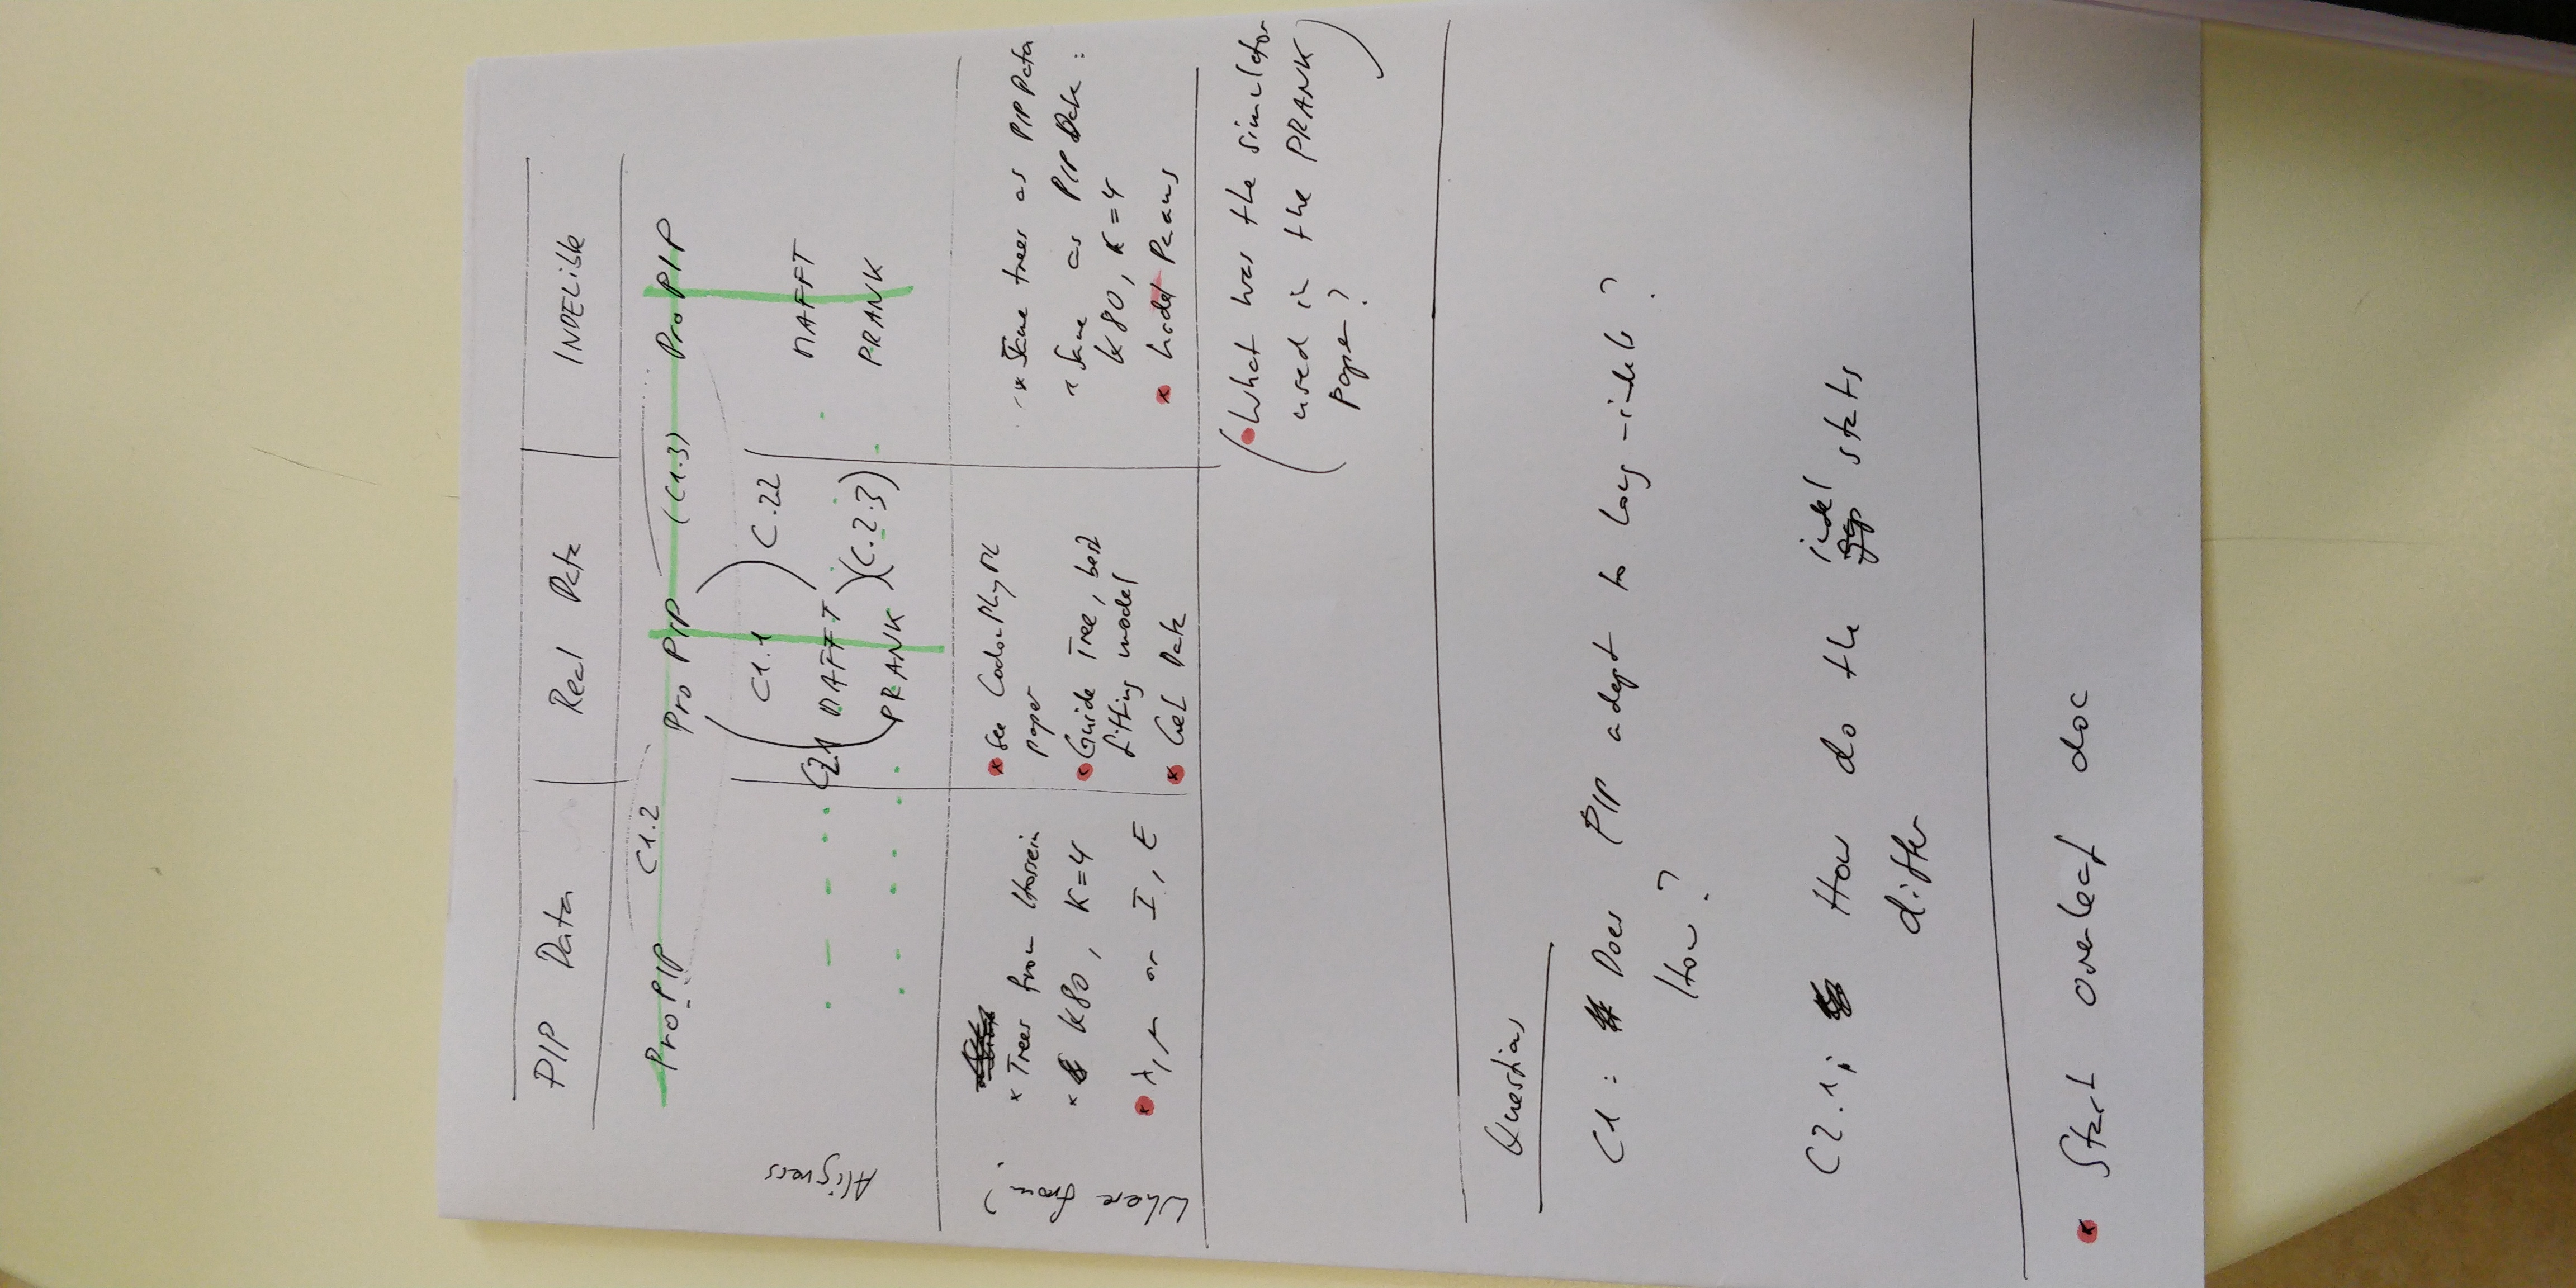 PIP Data Real Data INDELible
ProPIP C1.2 ProPIP (C1.3) ProPIP
Aligners
C1.1 C.22
C2.1 MAFFT MAFFT
(C.2.3)
PRANK PRANK
Where from?
× Trees from Hossein
× K80, K=4
× λ, μ or I, E
× See CodonPhyML
paper
× Guide Tree, best
fitting model
× Get Data
× Same trees as PIP Data
× Same as PIP Data:
K80, K=4
× Model Params
(• What was the simulator
used in the PRANK
paper?)
Questions
C1: Does PIP adapt to long-indels?
How?
C2.1: How do the indel stats
differ
× Start overleaf doc